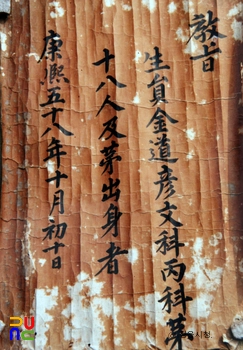 敎旨
生員金道彦文科丙科苐
十八人及苐出身者
康熙五十八年十月初十日